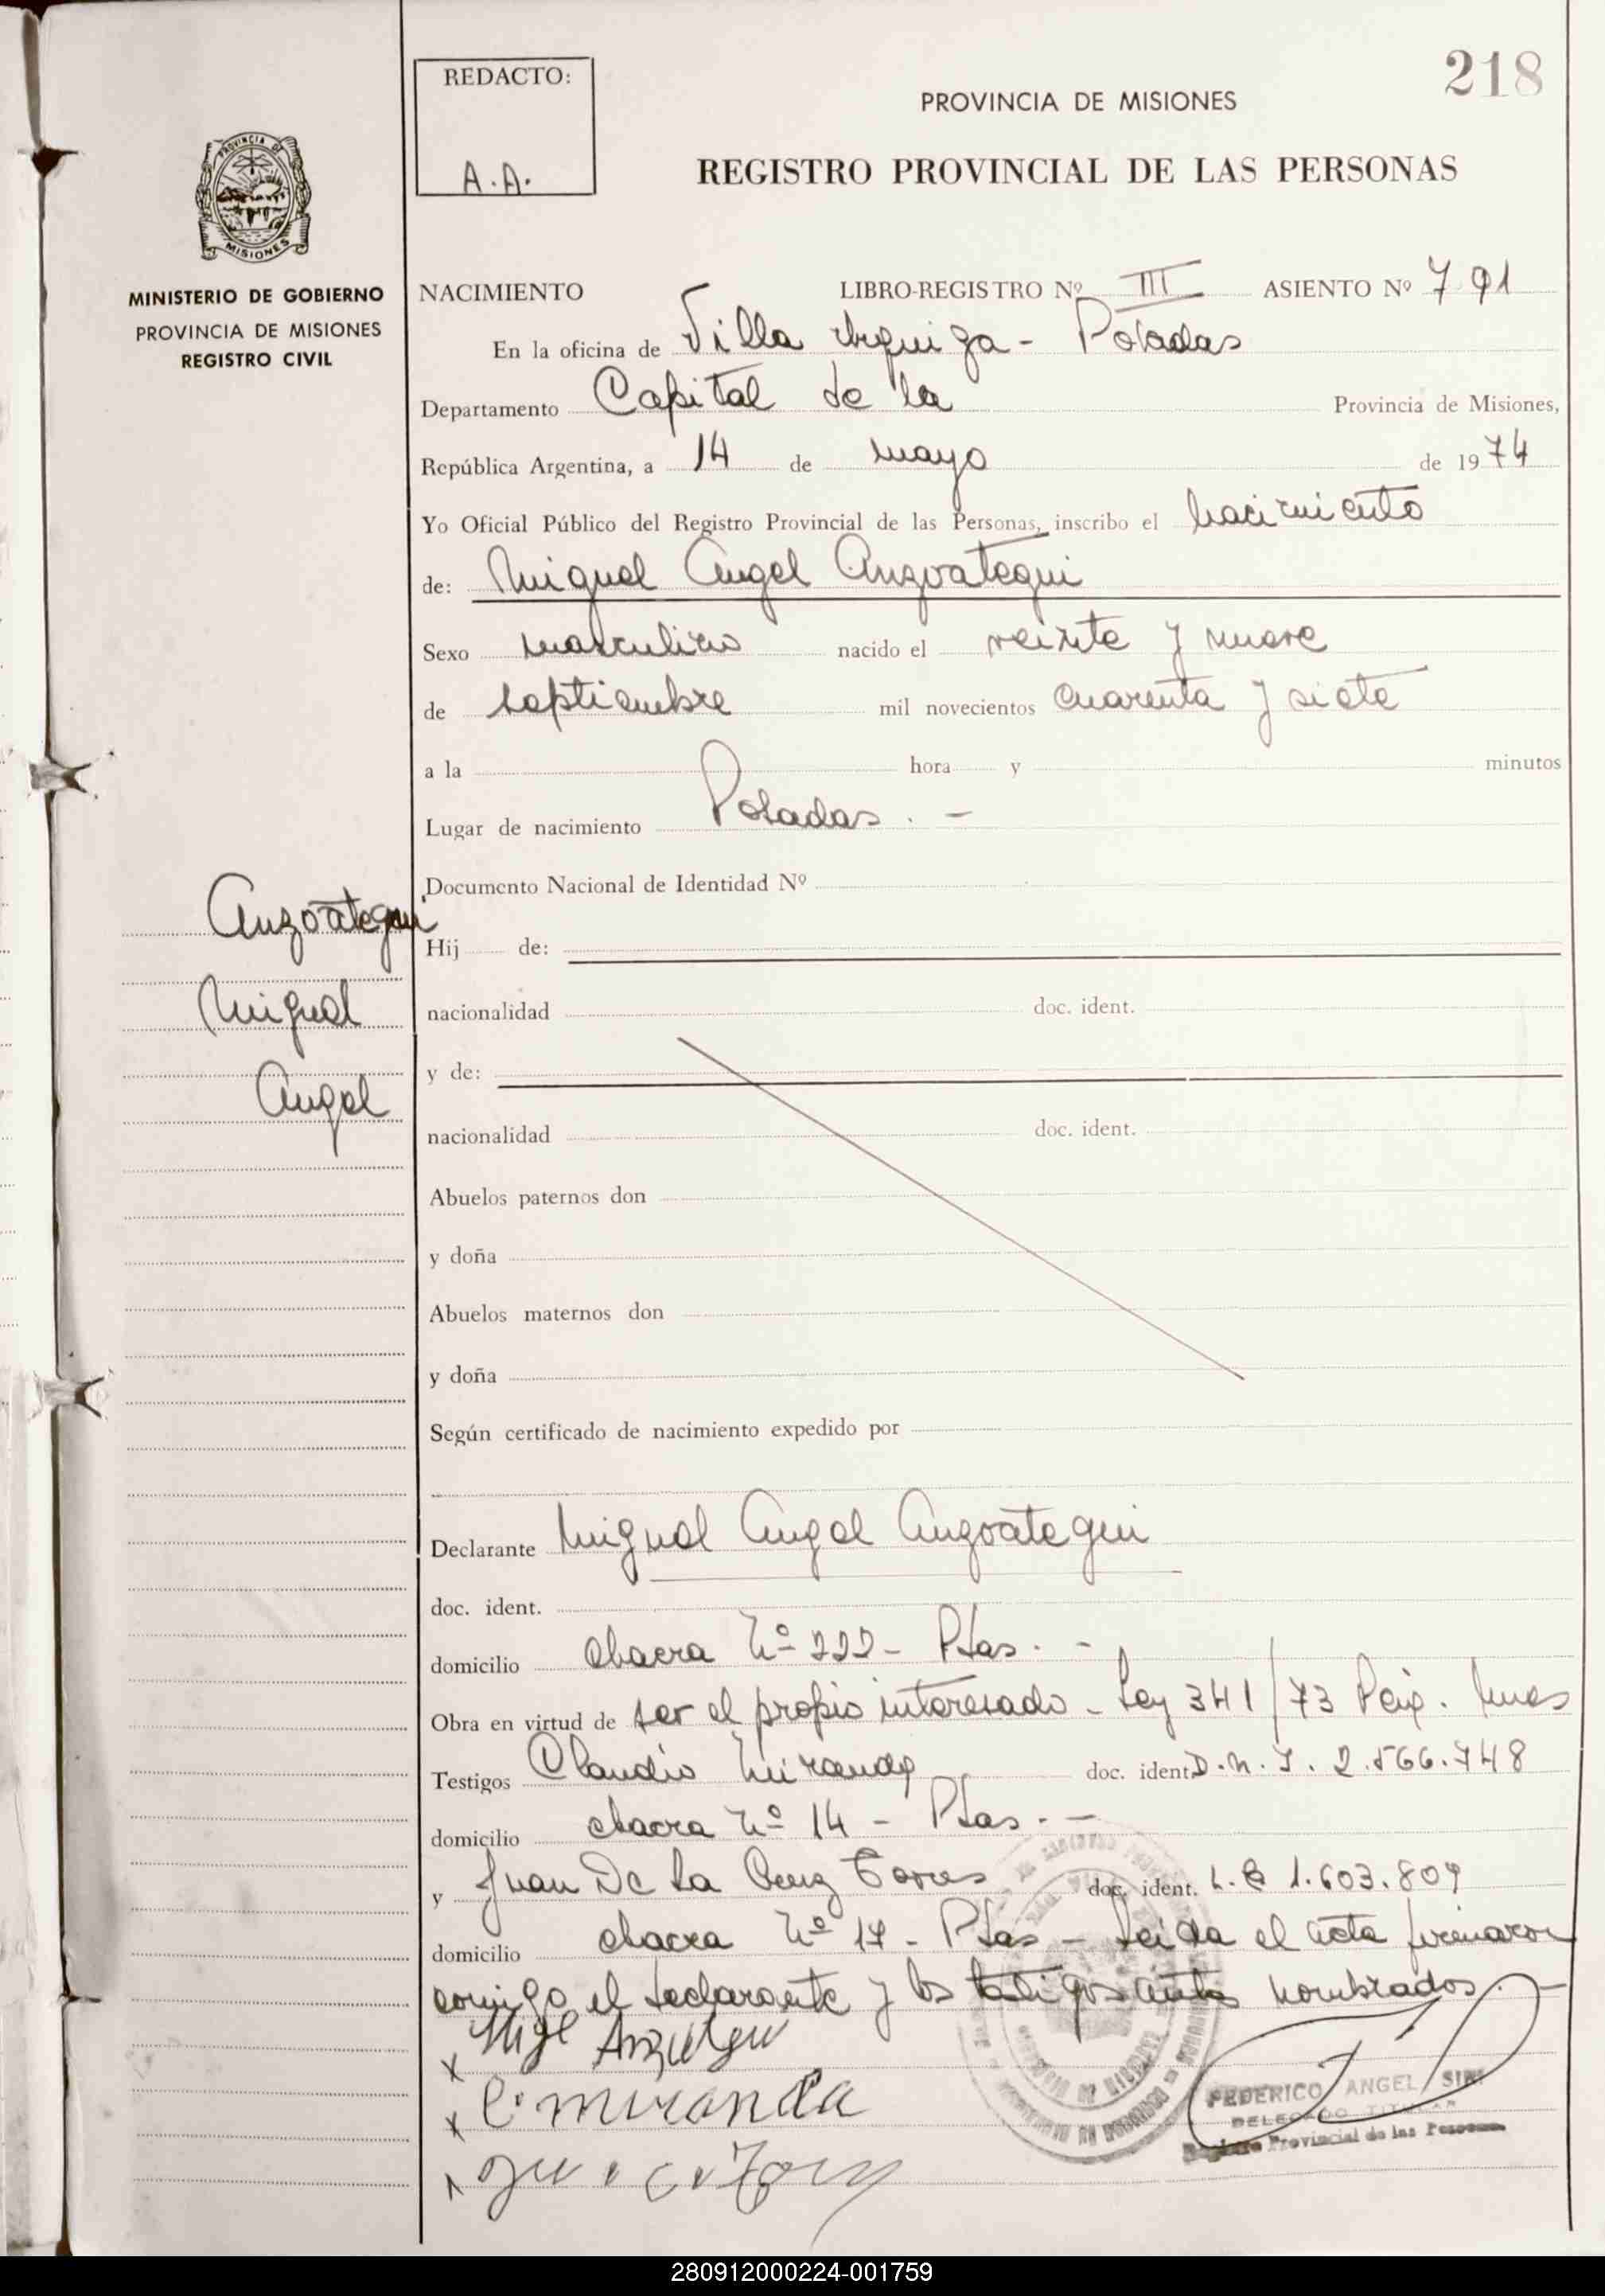 218
REDACTO:
A.A.
PROVINCIA DE MISIONES
REGISTRO PROVINCIAL DE LAS PERSONAS
PROVINCIA DE
MISIONES
MINISTERIO DE GOBIERNO
PROVINCIA DE MISIONES
REGISTRO CIVIL
NACIMIENTO LIBRO-REGISTRO Nº III ASIENTO Nº 791
En la oficina de Villa Urquiza - Posadas
Departamento Capital de la Provincia de Misiones,
República Argentina, a 14 de mayo de 1974
Yo Oficial Público del Registro Provincial de las Personas, inscribo el nacimiento
de: Miguel Angel Anzoategui
Sexo masculino nacido el veinte y nueve
de septiembre mil novecientos cuarenta y siete
a la hora y minutos
Lugar de nacimiento Posadas . -
Documento Nacional de Identidad Nº
Anzoategui
Miguel
Angel
Hij de:
nacionalidad doc. ident.
y de:
nacionalidad doc. ident.
Abuelos paternos don
y doña
Abuelos maternos don
y doña
Según certificado de nacimiento expedido por
Declarante Miguel Angel Anzoategui
doc. ident.
domicilio chacra Nº 222 - Pdas. -
Obra en virtud de ser el propio interesado - Ley 341/73
Testigos Claudio Miranda doc. ident. D.N.I. 2.566.748
domicilio chacra Nº 14 - Pdas. -
y Juan De La Cruz Torres doc. ident. L.E 1.603.809
domicilio chacra Nº 17 - Pdas - Leida el acta firmaron
conmigo el declarante y los testigos antes nombrados. -
x
x C. miranda
x
FEDERICO ANGEL SIRI
DELEGADO TITULAR
Registro Provincial de las Personas
280912000224-001759